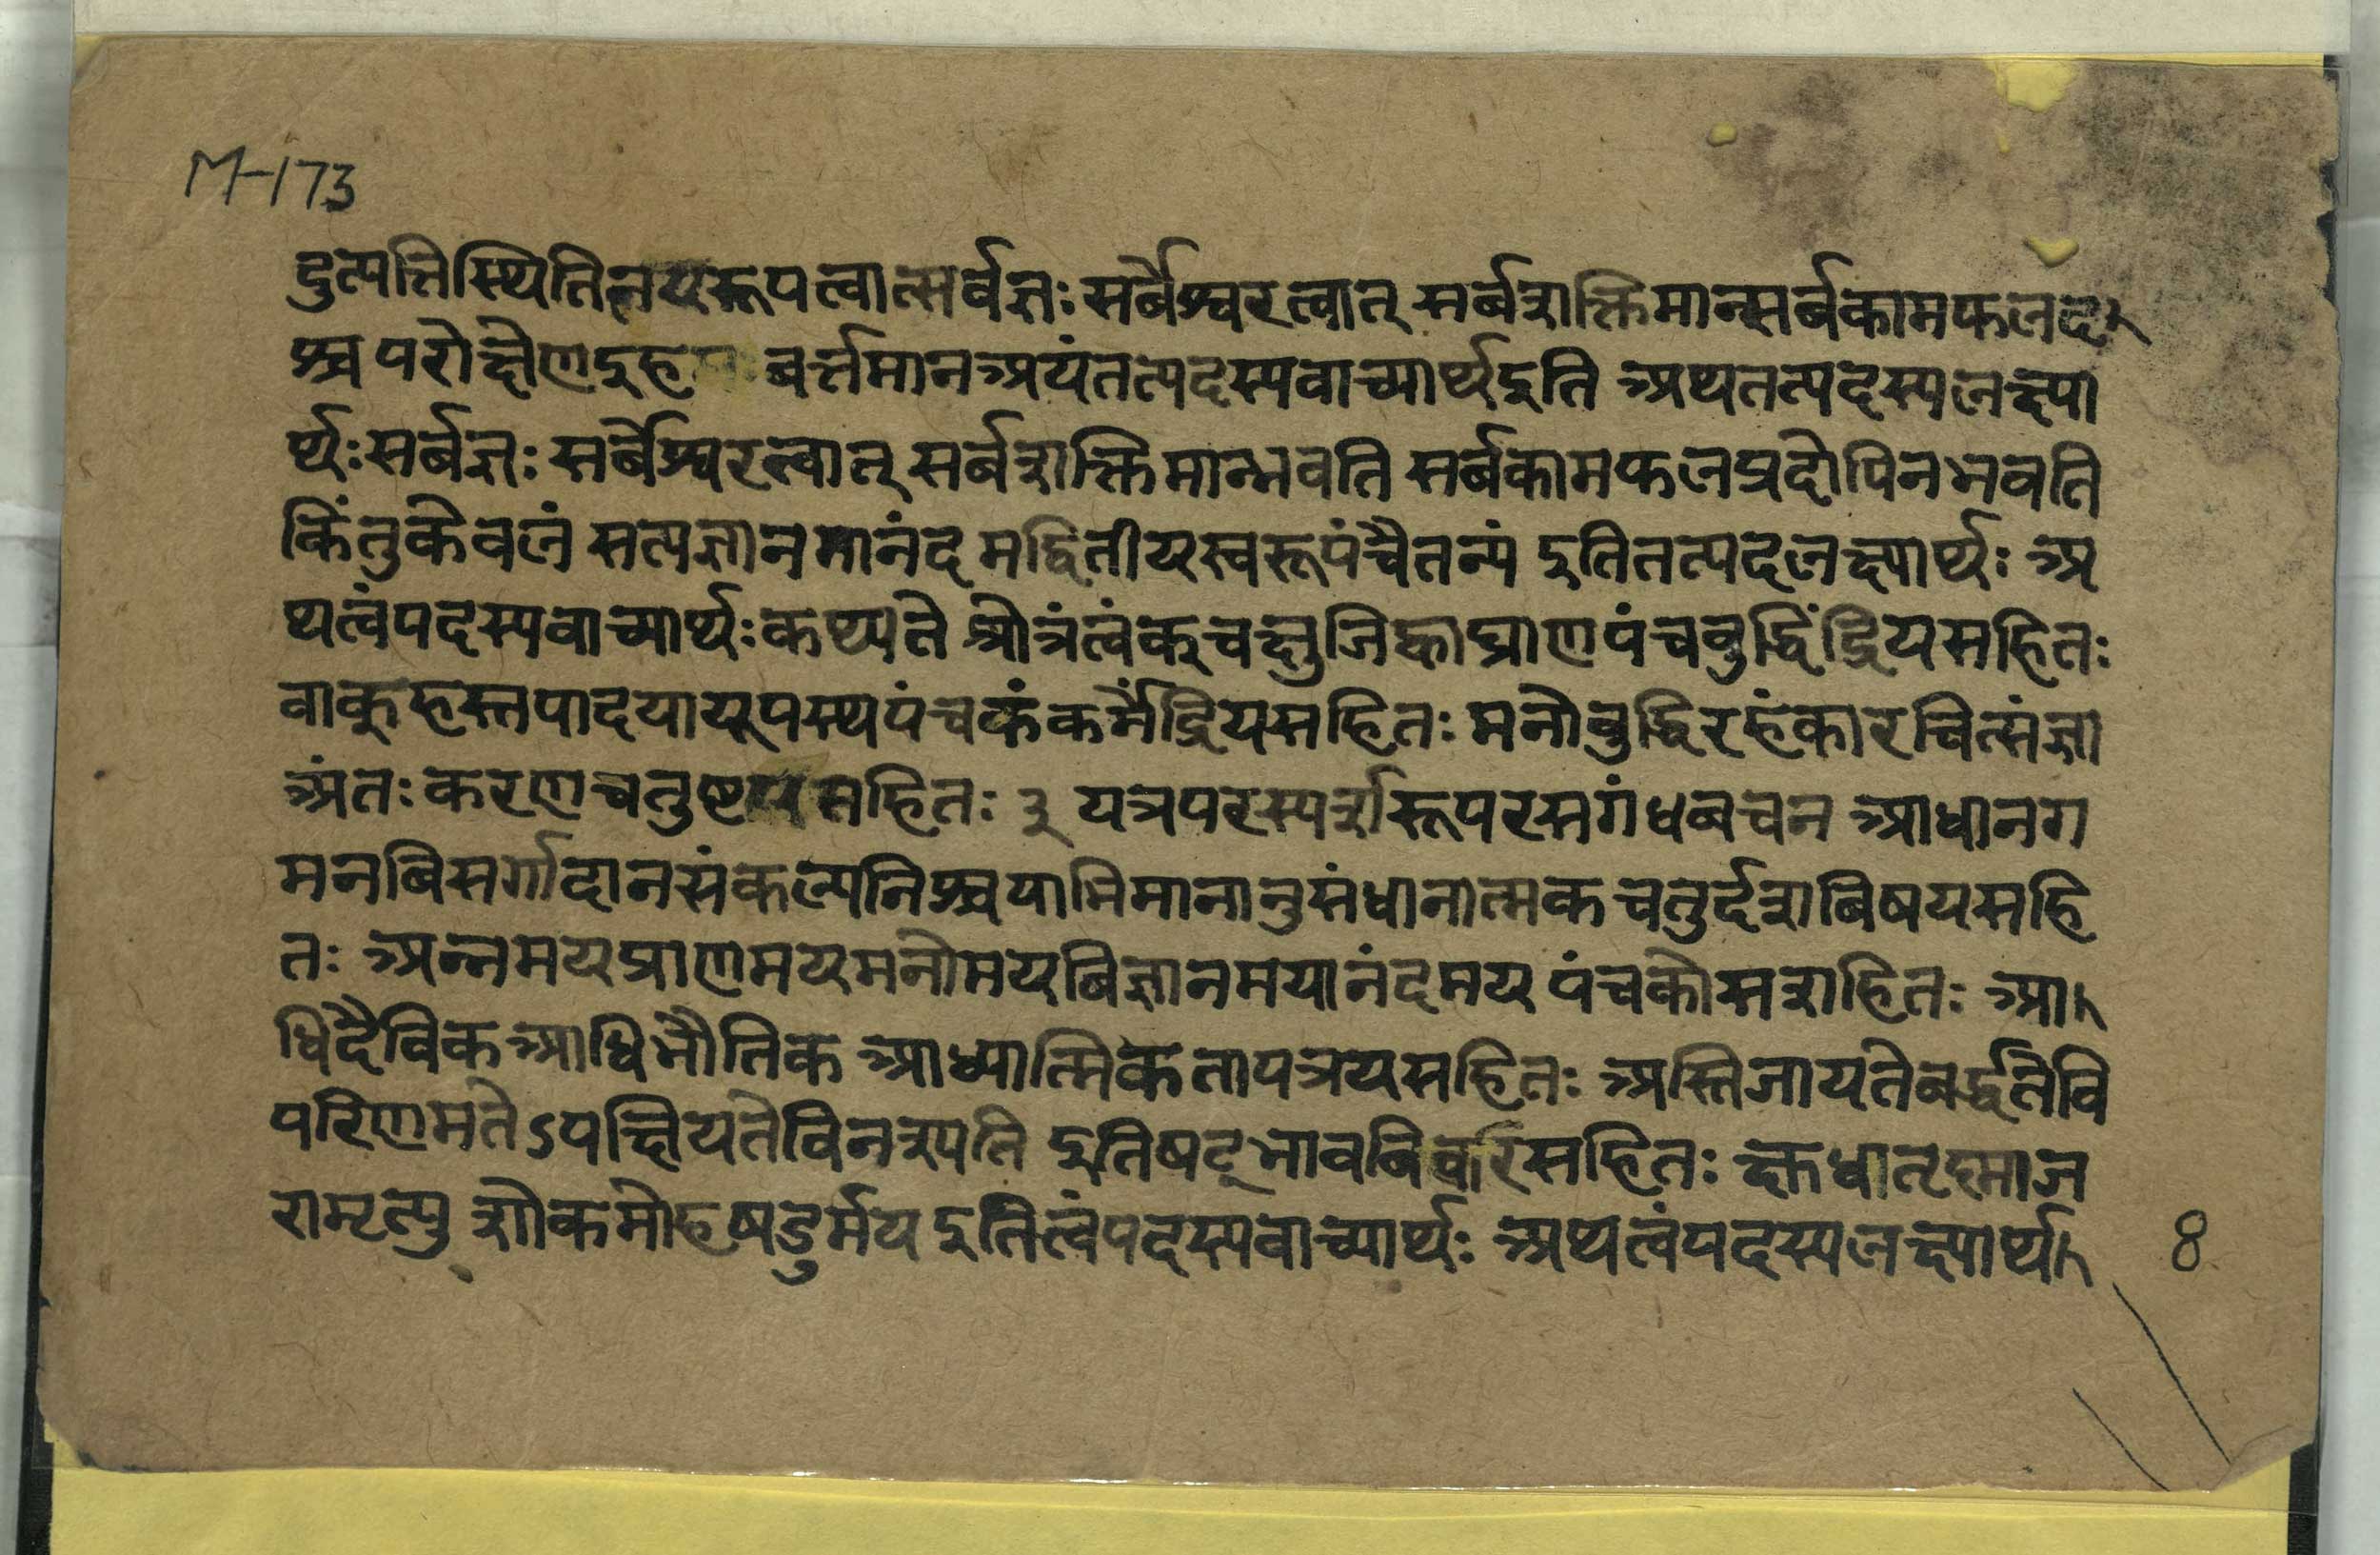 M-173
दुत्पत्तिस्थितिलयरूपत्वात्सर्वज्ञः सर्बैश्वरत्वात् सर्बशक्तिमान्सर्बकामफलद
श्च परोक्षेण बर्त्तमानअयंतत्पदस्यवाच्यार्थइति अथतत्पदस्यलक्ष्या
र्थः सर्बज्ञः सर्बेश्वरत्वात् सर्बशक्तिमान्भवति सर्बकामफलप्रदोपिनभवति
किंतुकेवलं सत्यज्ञानमानंद मद्वितीयस्वरूपंचैतन्यं इतितत्पदलक्ष्यार्थः अ
थत्वंपदस्यवाच्यार्थः कथ्यते श्रोत्रंत्वंक्चक्षुजिह्वाघ्राणपंचबुद्धिंद्रियसहितः
वाक्हस्तपादपायूपस्थपंचकंकर्मेंद्रियसहितः मनोबुद्धिरहंकारचित्संज्ञा
अंतःकरणचतुष्टयसहितः ३ यत्रपरस्पर्शरूपरसगंधबचन आधानग
मनबिसर्गादानसंकल्पनिश्चयाभिमानानुसंधानात्मकचतुर्दशबिषयसहि
तः अन्नमयप्राणमयमनोमयबिज्ञानमयानंदमय पंचकोसशहितः आ
धिदैविकआधिभौतिक आध्यात्मिकतापत्रयसहितः अस्तिजायतेबर्द्धतेवि
परिणमतेऽपक्षियतेविनश्यति इतिषट्भावबिकारसहितः ज
रामृत्यु शोकमोहषडुर्मय इतित्वंपदस्यवाच्यार्थः अथत्वंपदस्यलक्ष्यार्थ
8